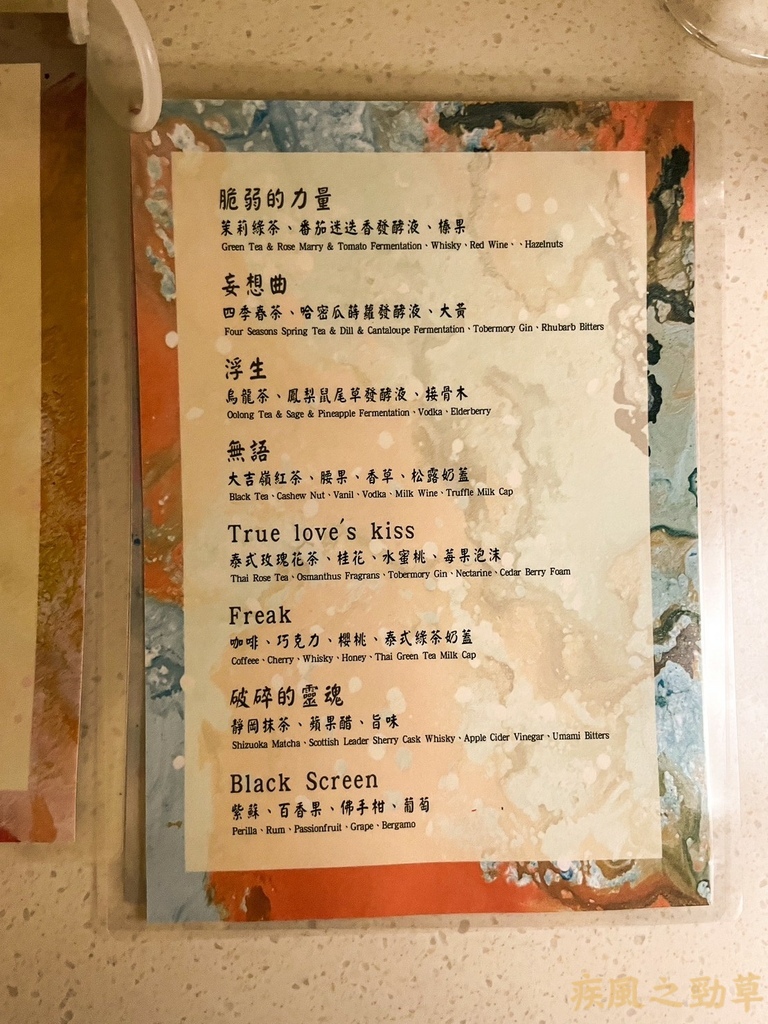 脆弱的力量
茉莉綠茶、番茄迷迭香發酵液、榛果
Green Tea & Rose Marry & Tomato Fermentation、Whisky、Red Wine、、Hazelnuts
妄想曲
四季春茶、哈密瓜蒔蘿發酵液、大黃
Four Seasons Spring Tea & Dill & Cantaloupe Fermentation、Tobermory Gin、Rhubarb Bitters
浮生
烏龍茶、鳳梨鼠尾草發酵液、接骨木
Oolong Tea & Sage & Pineapple Fermentation、Vodka、Elderberry
無語
大吉嶺紅茶、腰果、香草、松露奶蓋
Black Tea、Cashew Nut、Vanil、Vodka、Milk Wine、Truffle Milk Cap
True love's kiss
泰式玫瑰花茶、桂花、水蜜桃、莓果泡沫
Thai Rose Tea、Osmanthus Fragrans、Tobermory Gin、Nectarine、Cedar Berry Foam
Freak
咖啡、巧克力、櫻桃、泰式綠茶奶蓋
Coffeee、Cherry、Whisky、Honey、Thai Green Tea Milk Cap
破碎的靈魂
靜岡抹茶、蘋果醋、旨味
Shizuoka Matcha、Scottish Leader Sherry Cask Whisky、Apple Cider Vinegar、Umami Bitters
Black Screen
紫蘇、百香果、佛手柑、葡萄
Perilla、Rum、Passionfruit、Grape、Bergamo
疾風之勁草